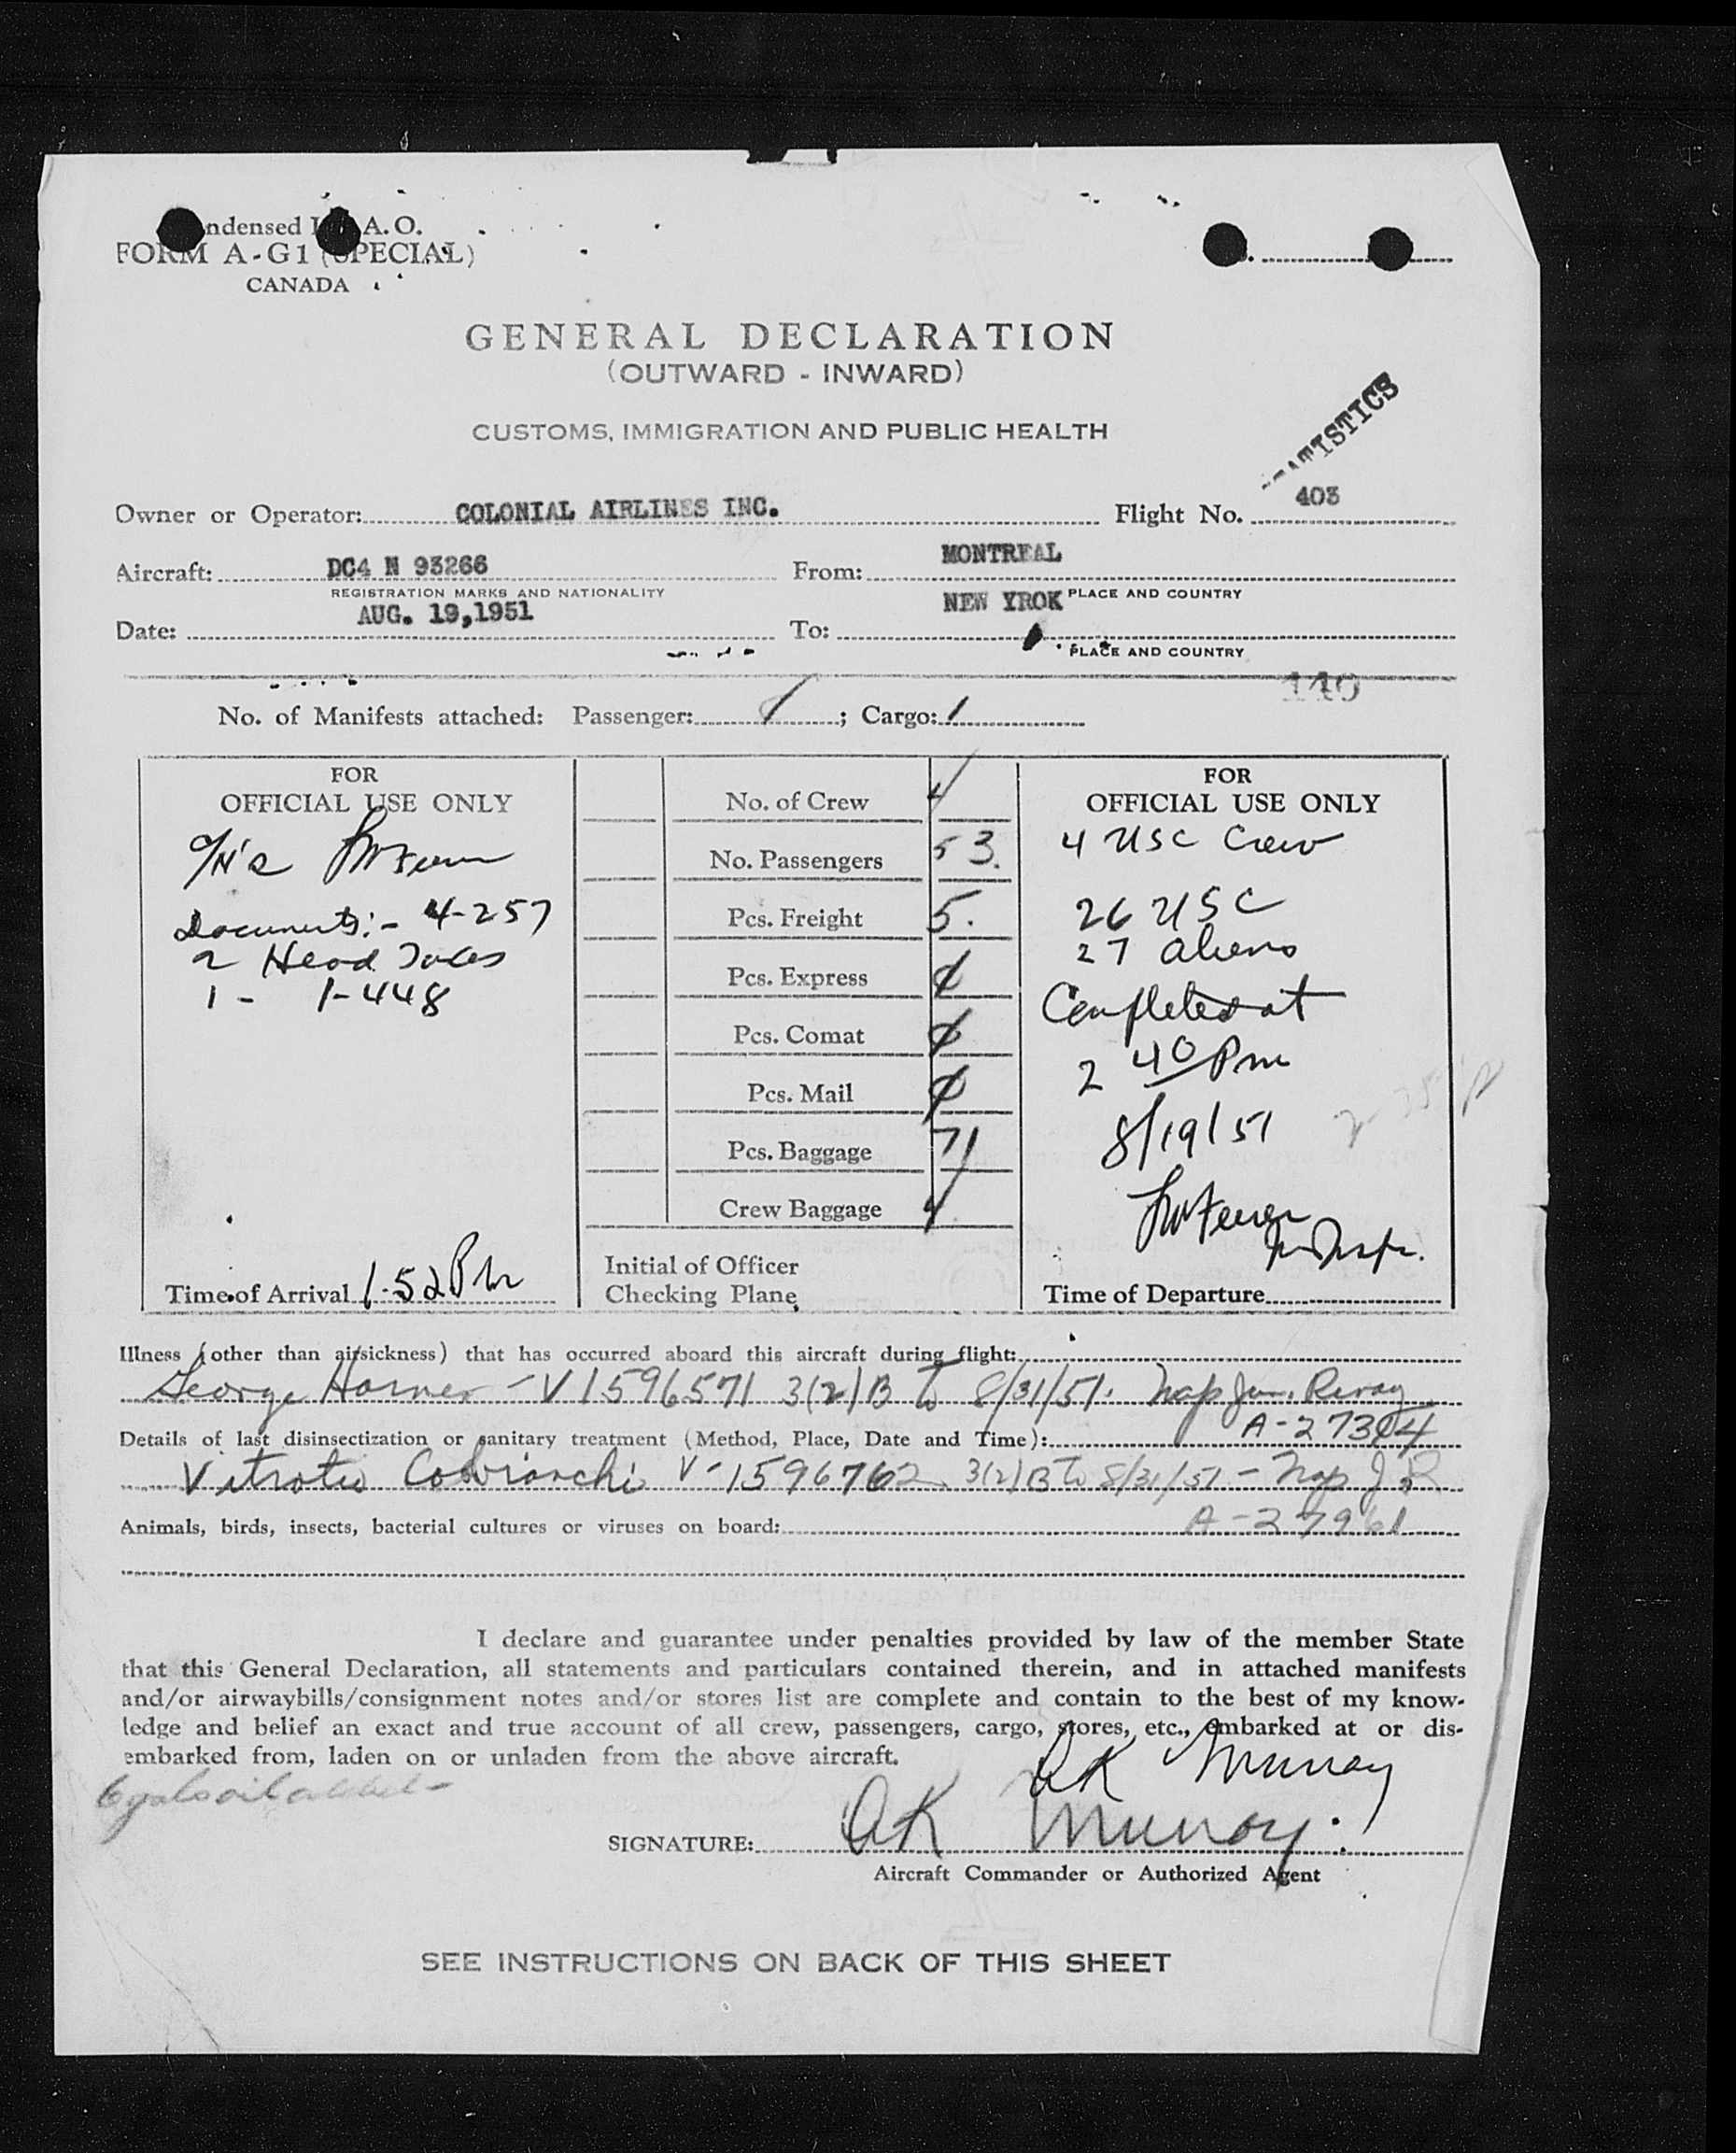 ndensed I A.O.
FORM A-G1 (SPECIAL)
CANADA
GENERAL DECLARATION
(OUTWARD - INWARD)
CUSTOMS, IMMIGRATION AND PUBLIC HEALTH
TATISTICS
Owner or Operator: COLONIAL AIRLINES INC. Flight No. 403
Aircraft: DC4 N 93266 From: MONTREAL
REGISTRATION MARKS AND NATIONALITY PLACE AND COUNTRY
Date: AUG. 19,1951 To: NEW YROK
PLACE AND COUNTRY
110
No. of Manifests attached: Passenger: 1; Cargo: 1
FOR
OFFICIAL USE ONLY
Documents:- 4-257
2 Head Taxes
1 - 1-448
Time of Arrival 1-52 Pm
No. of Crew 4
No. Passengers 53.
Pcs. Freight 5.
Pcs. Express
Pcs. Comat
Pcs. Mail
Pcs. Baggage 71
Crew Baggage 4
Initial of Officer
Checking Plane
FOR
OFFICIAL USE ONLY
4 USC Crew
26 USC
27 aliens
Completed at
2 40 Pm
8/19/51
Time of Departure
Illness (other than airsickness) that has occurred aboard this aircraft during flight:
George Horner - V1596571 3(2)B to 8/31/51.
Details of last disinsectization or sanitary treatment (Method, Place, Date and Time):
V-1596762 3(2)B to 8/31/51 -
Animals, birds, insects, bacterial cultures or viruses on board: A-27961
I declare and guarantee under penalties provided by law of the member State
that this General Declaration, all statements and particulars contained therein, and in attached manifests
and/or airwaybills/consignment notes and/or stores list are complete and contain to the best of my know-
ledge and belief an exact and true account of all crew, passengers, cargo, stores, etc., embarked at or dis-
embarked from, laden on or unladen from the above aircraft.
Murray
SIGNATURE: Murray
Aircraft Commander or Authorized Agent
SEE INSTRUCTIONS ON BACK OF THIS SHEET